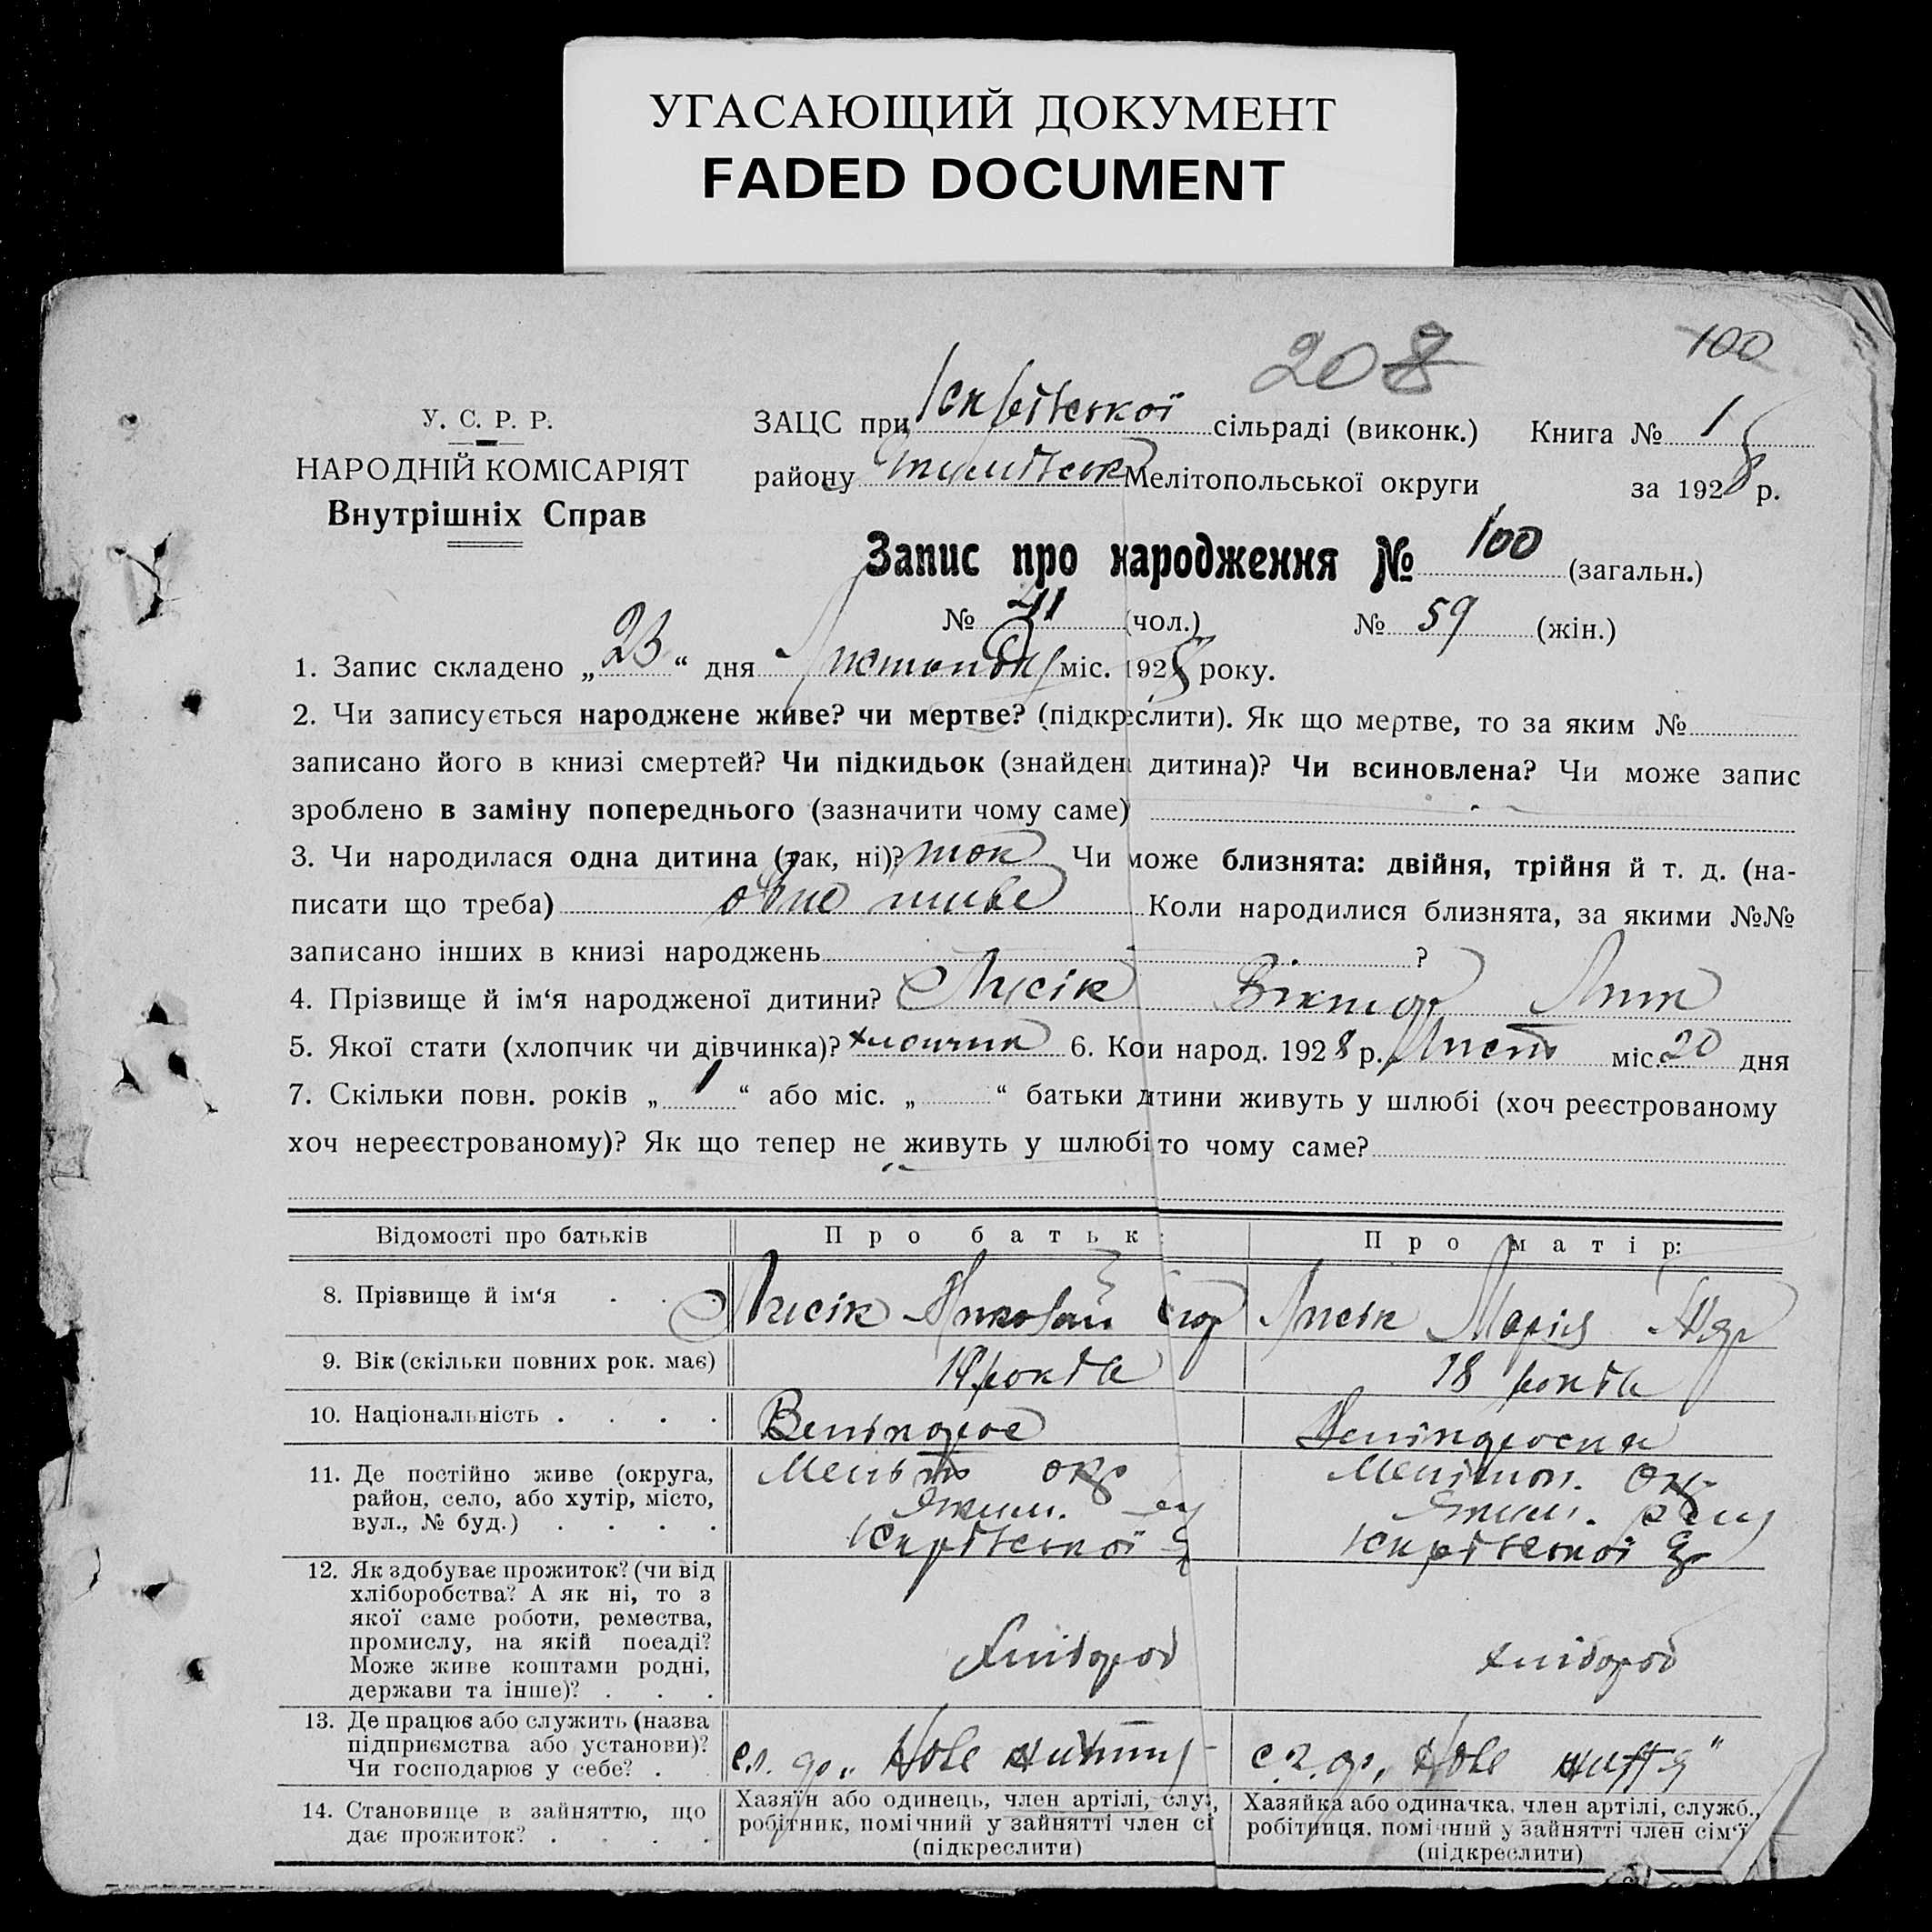 УГАСАЮЩИЙ ДОКУМЕНТ
FADED DOCUMENT
208
100
У. С. Р. Р.
НАРОДНІЙ КОМІСАРІЯТ
Внутрішніх Справ
ЗАЦС при сільраді (виконк.) Книга № 1
району Мелітопольської округи за 1928 р.
Запис про народження № 100 (загальн.)
№ 41 (чол.) № 59 (жін.)
1. Запис складено „23“ дня Листопада міс. 1928 року.
2. Чи записується народжене живе? чи мертве? (підкреслити). Як що мертве, то за яким №
записано його в книзі смертей? Чи підкидьок (знайдена дитина)? Чи всиновлена? Чи може запис
зроблено в заміну попереднього (зазначити чому саме)
3. Чи народилася одна дитина (так, ні)? так Чи може близнята: двійня, трійня й т. д. (на-
писати що треба) одно живе Коли народилися близнята, за якими №№
записано інших в книзі народжень ?
4. Прізвище й ім‘я народженої дитини? Лисік Віктор Мик
5. Якої стати (хлопчик чи дівчинка)? хлопчик 6. Кои народ. 1928 р. Лист міс. 20 дня
7. Скільки повн. років „1“ або міс. „ “ батьки дтини живуть у шлюбі (хоч реєстрованому
хоч нереєстрованому)? Як що тепер не живуть у шлюбі то чому саме?
Відомості про батьків Про батьк: Про матір:
8. Прізвище й ім‘я . . . Лисік Миколай Єгор Лисік Марія
9. Вік (скільки повних рок. має) 19 років 18 років
10. Національність . . . . Велікорос Велікороска
11. Де постійно живе (округа, Меліт окр Мелітоп. Окр.
район, село, або хутір, місто, Яким. Яким.
вул., № буд.) . . . .
12. Як здобуває прожиток? (чи від
хліборобства? А як ні, то з
якої саме роботи, ремества,
промислу, на якій посаді? Хлібороб хлібороб
Може живе коштами родні,
держави та інше)? . . .
13. Де працює або служить (назва
підприємства або установи)? „Нове життя „Нове життя“
Чи господарює у себе? .
14. Становище в зайняттю, що Хазяїн або одинець, член артілі, служ, Хазяйка або одиначка, член артілі, служб.,
дає прожиток? . . . . робітник, помічний у зайнятті член сі робітниця, помічний у зайнятті член сім‘ї
(підкреслити) (підкреслити)